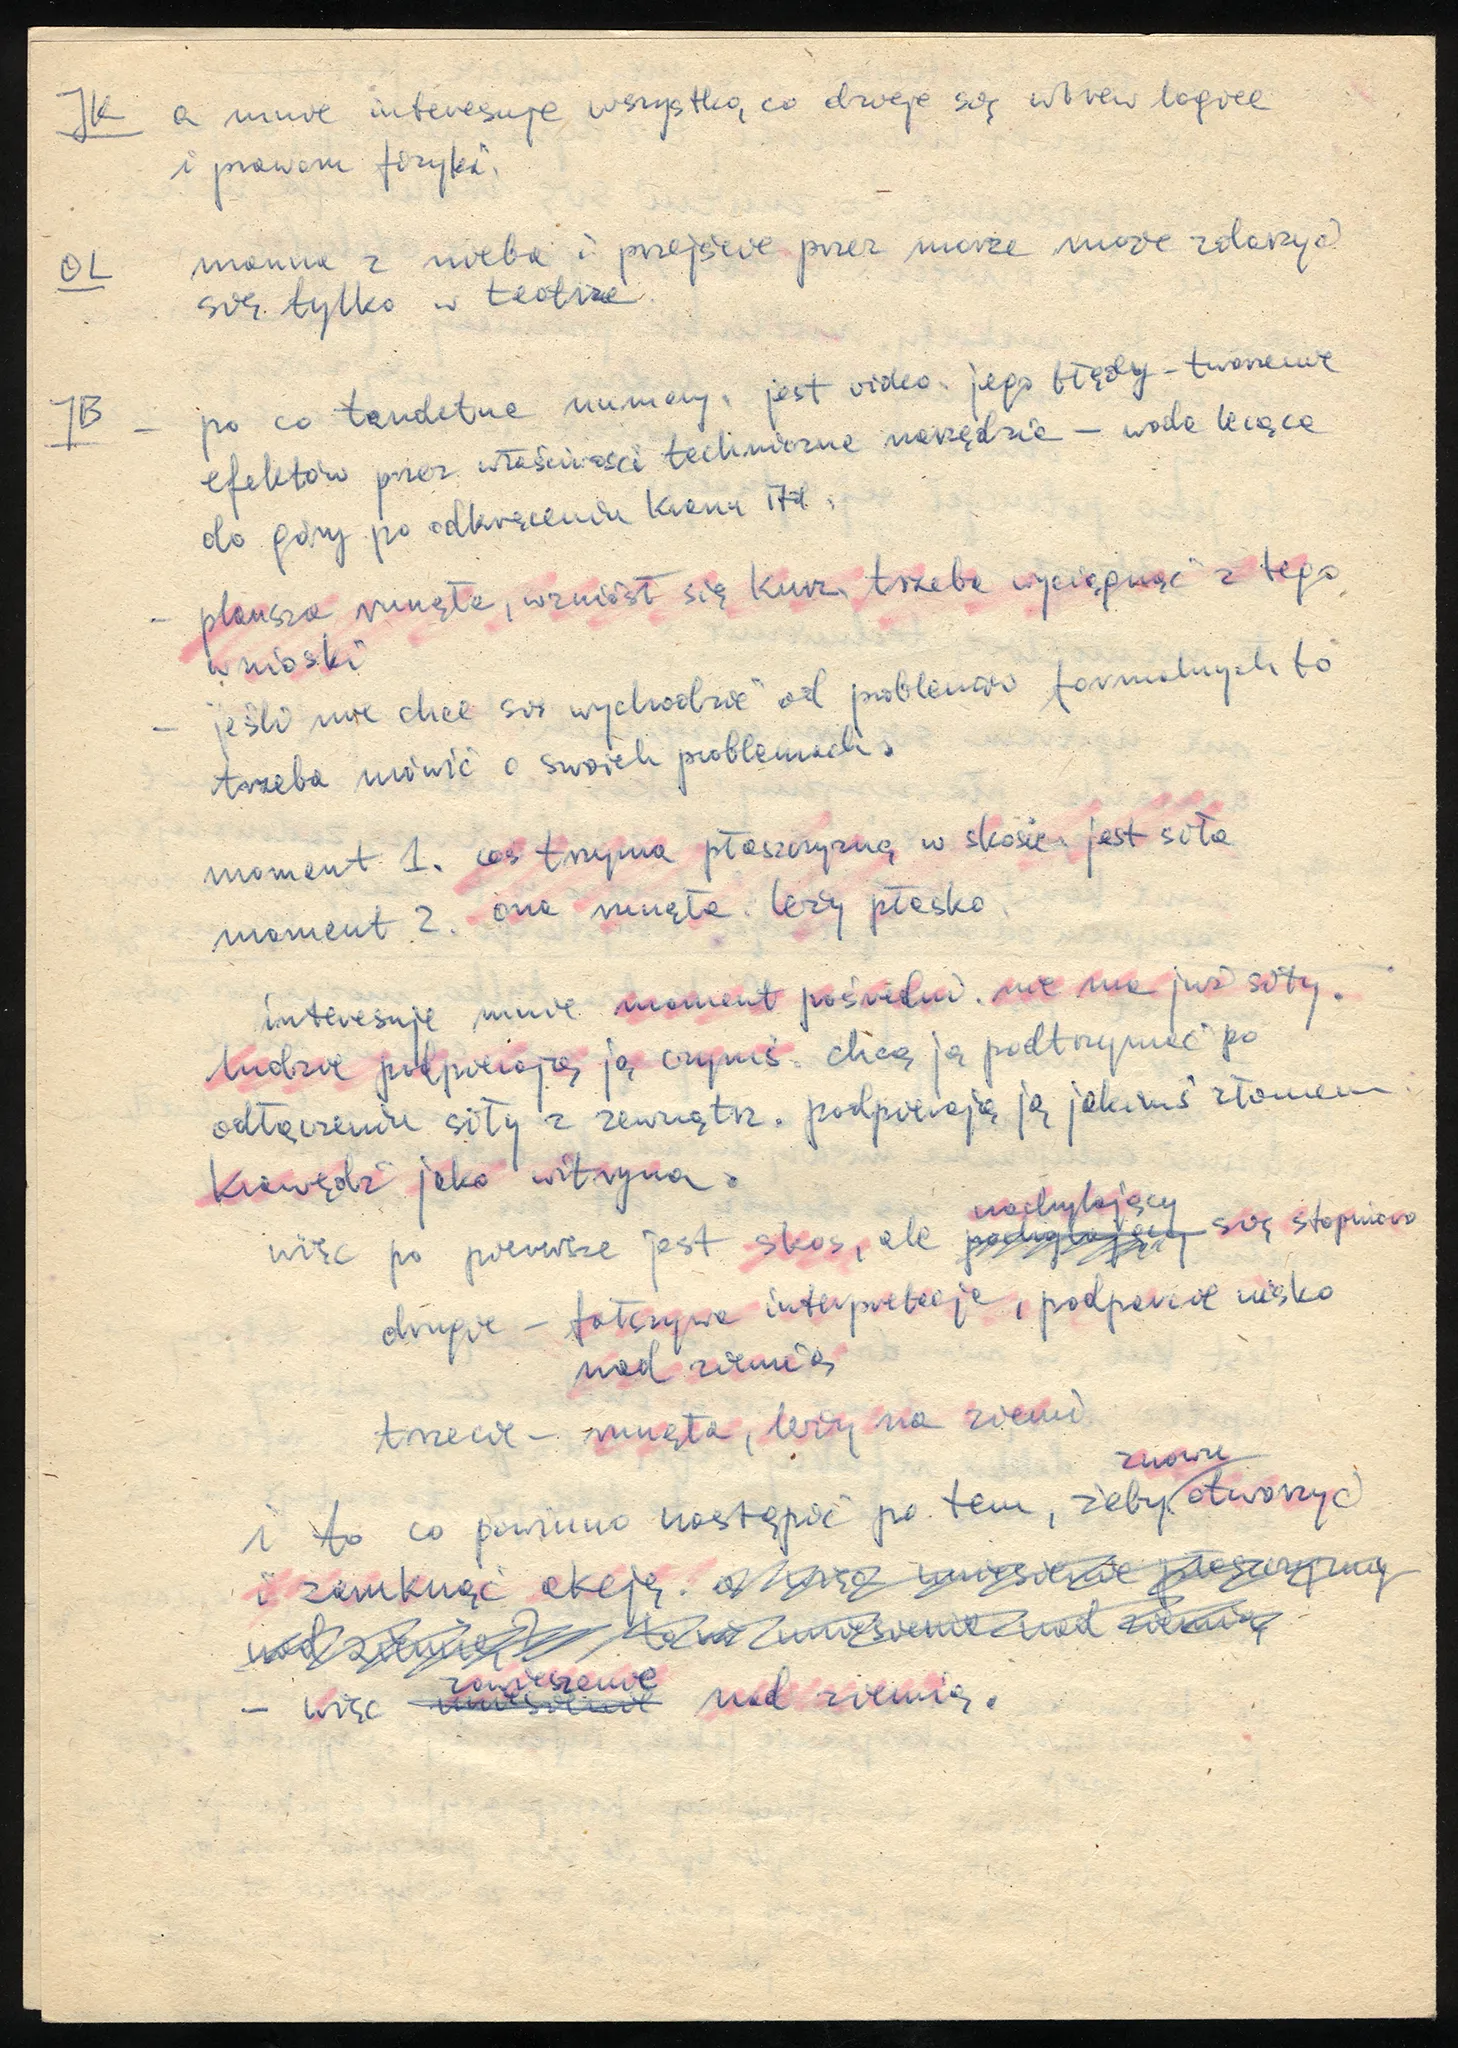 JK a mnie interesuje wszystko, co dzieje się wbrew logice
i prawom fizyki.
OL manna z nieba i przejście przez morze może zdarzyć
się tylko w teatrze.
JB – po co tandetne numery. jest video. jego błędy – tworzenie
efektów przez właściwości techniczne narzędzia – woda lecąca
do góry po odkręceniu kranu itd.
– plansza runęła, wzniósł się kurz. trzeba wyciągnąć z tego
wnioski
– jeśli nie chce się wychodzić od problemów formalnych to
trzeba mówić o swoich problemach.
moment 1. coś trzyma płaszczyznę w skosie. jest siła
moment 2. ona runęła. leży płasko.
interesuje mnie moment pośredni. nie ma już siły.
ludzie podpierają ją czymś. chcą ją podtrzymać po
odłączeniu siły z zewnątrz. podpierają ją jakimś złomem
krawędź jako witryna.
nachylający
więc po pierwsze jest skos, ale się stopniowo
drugie – fałszywa interpretacja, podparcie nisko
nad ziemią
trzecie – runęła, leży na ziemi
znowu
i to co powinno nastąpić po tem, żeby otworzyć
i zamknąć akcję. a więc uniesienie płaszczyzny
nad ziemią to uniesienie nad ziemią
zawieszenie
– więc uniesienie nad ziemią.